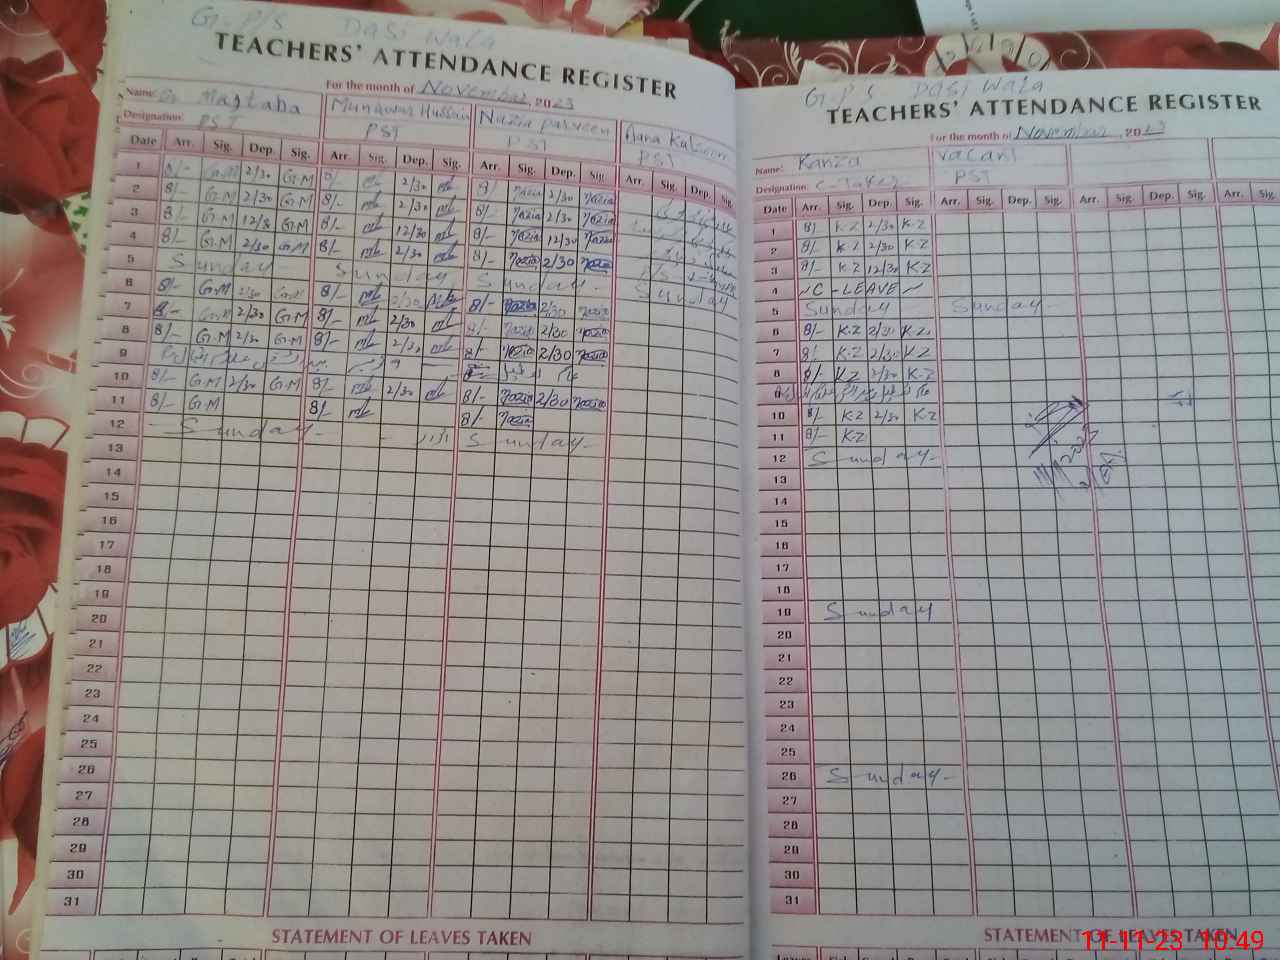 G.P/S DASI Wala
TEACHERS' ATTENDANCE REGISTER
For the month of November 2023
Name: G. Majtaba Munawar Hussain Nazia parveen Kulsoom
Designation: PST PST PST PST
Date Arr. Sig. Dep. Sig. Arr. Sig. Dep. Sig. Arr. Sig. Dep. Sig. Arr. Sig. Dep. Sig.
1 8/- G.M 2/30 G.M 8/- 2/30 8/ Nazia 2/30 Nazia
2 8/- G.M 2/30 G.M 8/- 2/30 8/- Nazia 2/30 Nazia
3 8/- G.M 12/30 G.M 8/- 12/30 8/- Nazia 12/30 Nazia
4 8/- G.M 2/30 G.M 8/- 2/30 8/- Nazia 2/30 Nazia
5 Sunday Sunday Sunday Sunday
6 8/- G.M 2/30 G.M 8/- 2/30 8/- Nazia 2/30 Nazia
7 8/- G.M 2/30 G.M 8/- 2/30 8/- Nazia 2/30 Nazia
8 8/- G.M 2/30 G.M 8/- 2/30 8/- Nazia 2/30 Nazia
9
10 8/- G.M 2/30 G.M 8/- 2/30 8/- Nazia 2/30 Nazia
11 8/- G.M 8/- 8/- Nazia
12 Sunday Sunday
13
14
15
16
17
18
19
20
21
22
23
24
25
26
27
28
29
30
31
STATEMENT OF LEAVES TAKEN
G.P.S DASI Wala
TEACHERS' ATTENDANCE REGISTER
For the month of November 2023
Name: Kanza Vacant
Designation: PST
Date Arr. Sig. Dep. Sig. Arr. Sig. Dep. Sig. Arr. Sig. Dep. Sig. Arr. Sig.
1 8/- K-Z 2/30 K-Z
2 8/- K-Z 2/30 K-Z
3 8/- K-Z 12/30 K-Z
4 C-LEAVE
5 Sunday Sunday
6 8/- K-Z 2/30 K-Z
7 8/- K-Z 2/30 K-Z
8 8/- K-Z 2/30 K-Z
9
10 8/- K-Z 2/30 K-Z
11 8/- K-Z
12 Sunday
13
14
15
16
17
18
19 Sunday
20
21
22
23
24
25
26 Sunday
27
28
29
30
31
STATEMENT OF LEAVES TAKEN
11-11-23 10:49